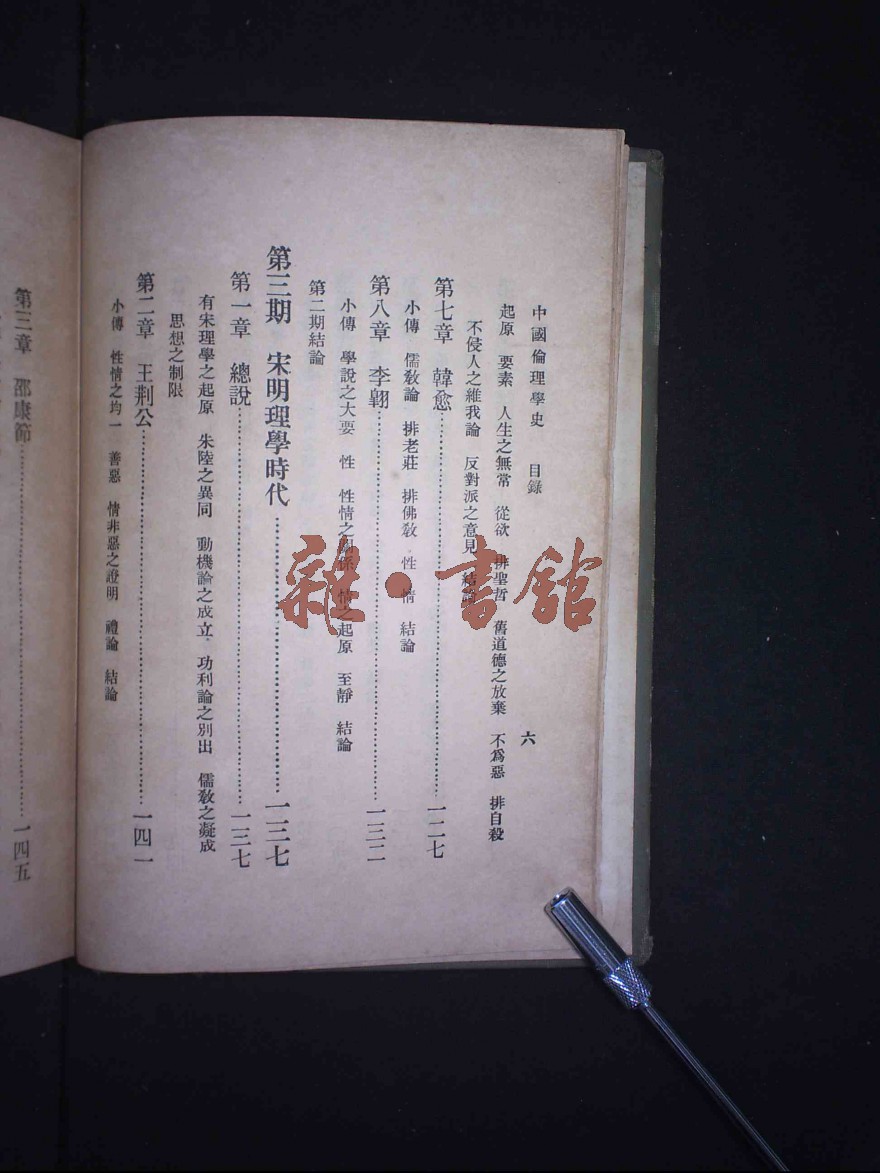 中國倫理學史　目錄　六
起原　要素　人生之無常　從欲　排聖哲　舊道德之放棄　不爲惡　排自殺
不侵人之維我論　反對派之意見　結論
第七章　韓愈……一二七
小傳　儒敎論　排老莊　排佛敎　性　情　結論
第八章　李翶……一三二
小傳　學說之大要　性　性情之關係　情之起原　至靜　結論
第二期結論
第三期　宋明理學時代……一三七
第一章　總說……一三七
有宋理學之起原　朱陸之異同　動機論之成立　功利論之別出　儒敎之凝成
思想之制限
第二章　王荆公……一四一
小傳　性情之均一　善惡　情非惡之證明　禮論　結論
第三章　邵康節……一四五
雜·書館